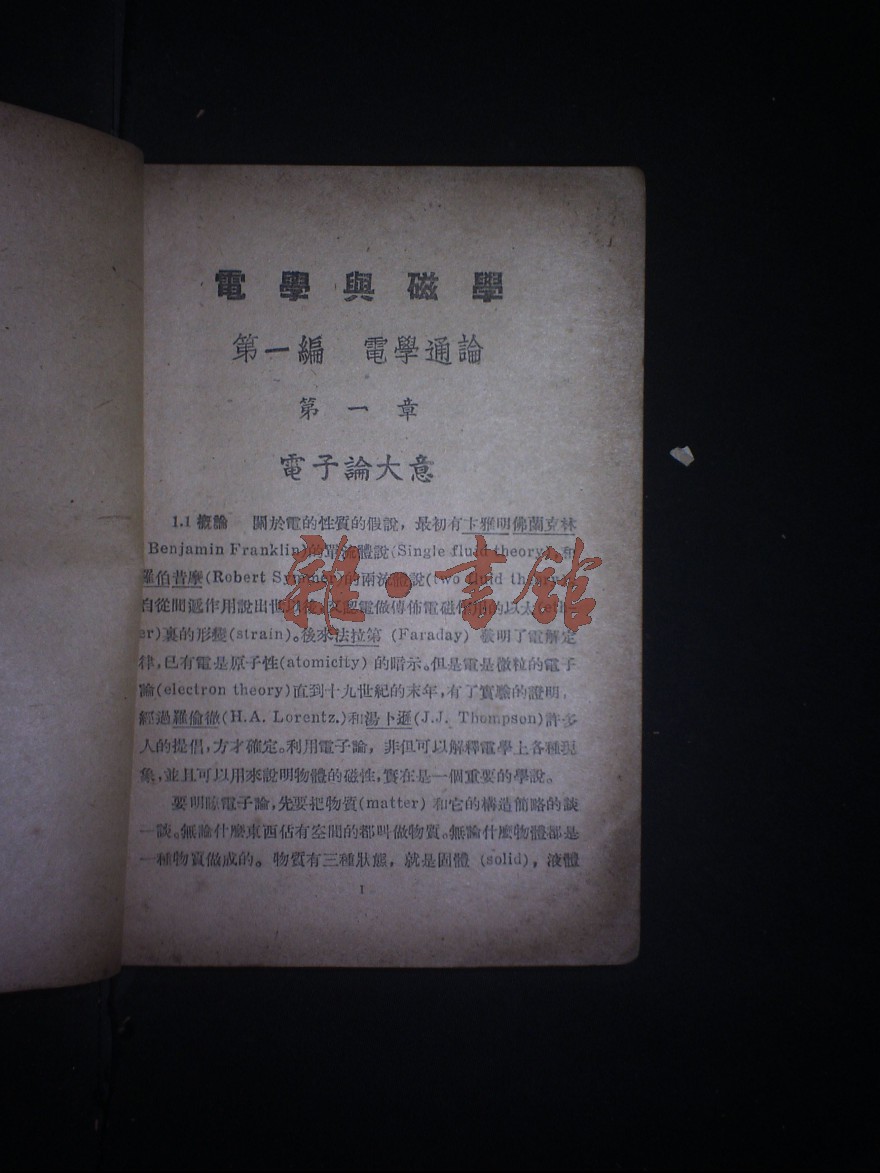 電學與磁學
第一編 電學通論
第一章
電子論大意
1.1 概論 關於電的性質的假說,最初有卞雅明佛蘭克林
Benjamin Franklin)的單流體說(Single fluid theory),和
羅伯昔摩(Robert Symmer)的兩流體說(two fluid theory)。
自從間遞作用說出世以後,又認電做傳佈電磁作用的以太(eth-
er)裏的形變(strain)。後來法拉第 (Faraday) 發明了電解定
律,已有電是原子性(atomicity) 的暗示。但是電是微粒的電子
論(electron theory)直到十九世紀的末年,有了實驗的證明,
經過羅倫徹(H.A. Lorentz.)和湯卜遜(J.J. Thompson)許多
人的提倡,方才確定。利用電子論,非但可以解釋電學上各種現
象,並且可以用來說明物體的磁性,實在是一個重要的學說。
要明瞭電子論,先要把物質(matter) 和它的構造簡略的談
一談。無論什麼東西佔有空間的都叫做物質。無論什麼物體都是
一種物質做成的。物質有三種狀態,就是固體 (solid),液體
1
雜·書館